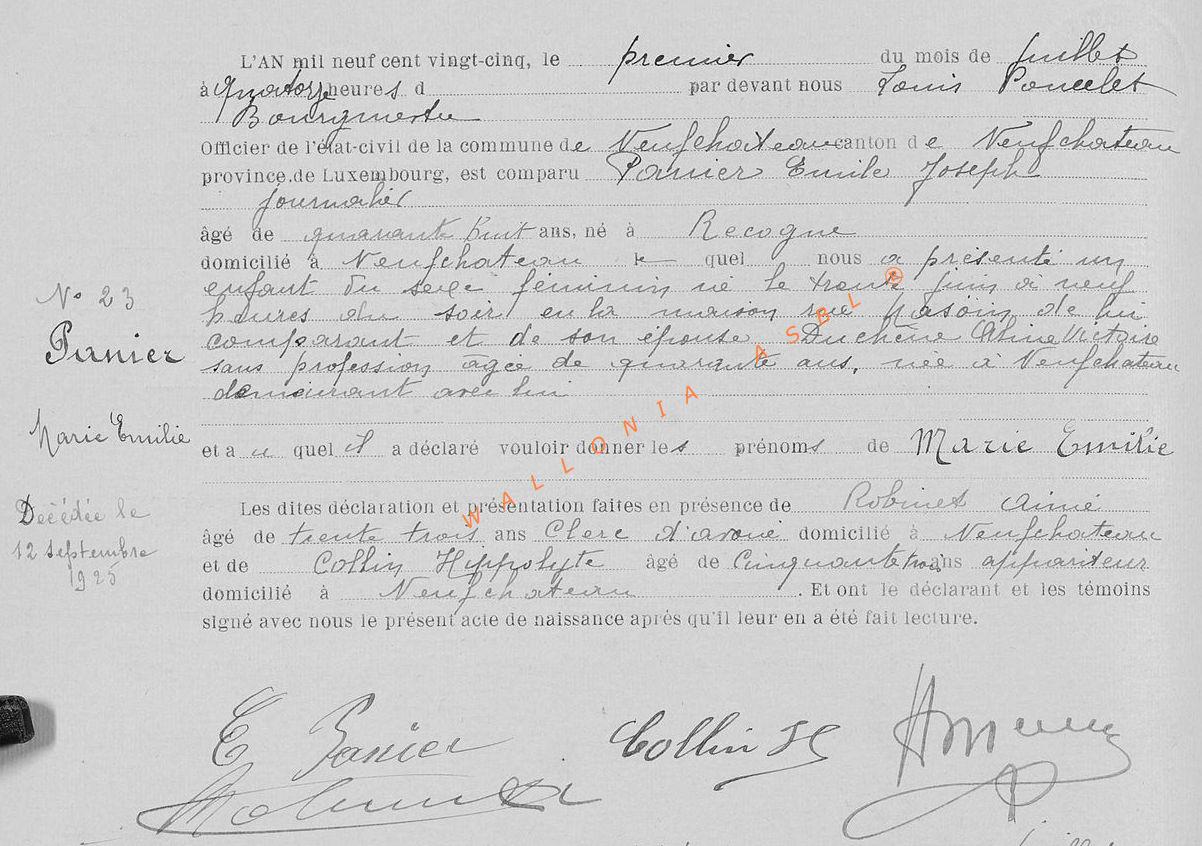 L'AN mil neuf cent vingt-cinq, le premier du mois de juillet
à quatorze heures d par devant nous Louis Poncelet
Bourgmestre
Officier de l'état-civil de la commune de Neufchateau canton de Neufchateau
province de Luxembourg, est comparu Panier Emile Joseph
journalier
âgé de quarante huit ans, né à Recogne
domicilié à Neufchateau le quel nous a présenté un
enfant du sexe féminin né le trente juin à neuf
heures du soir en la maison rue de lui
comparant et de son épouse Duchêne Aline Victoire
sans profession agée de quarante ans, née à Neufchateau
demeurant avec lui
N° 23
Panier
Marie Emilie
et a u quel il a déclaré vouloir donner les prénoms de Marie Emilie
Décédée le
12 septembre
1925
Les dites déclaration et présentation faites en présence de Robinet Aimé
âgé de trente trois ans Clerc d'avoué domicilié à Neufchateau
et de Collin Hippolyte âgé de Cinquante trois ans appariteur
domicilié à Neufchateau . Et ont le déclarant et les témoins
signé avec nous le présent acte de naissance après qu'il leur en a été fait lecture.
WALLONIA ASBL ®
E Panier
Collin H